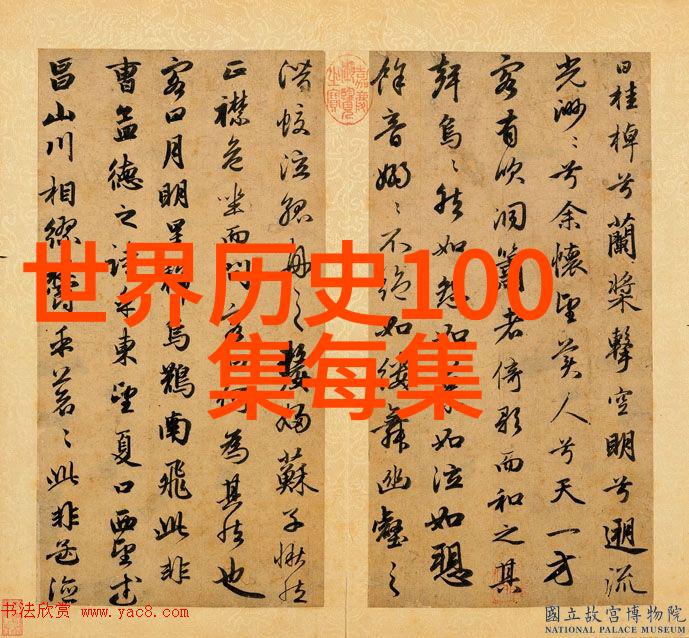 世界历史100
集每集
曰桂棹兮蘭槳擊空明兮遡流
光渺〻兮余懷望美人兮天一方
客有吹洞簫者倚歌而和之其
聲烏〻然如怨如慕如泣如愬
餘音嫋〻不絕如縷舞幽壑之
潛蛟泣孤舟之嫠婦蘇子愀然
正襟危坐而問客曰何為其然也
客曰月明星稀烏鵲南飛此非
曹孟德之詩乎東望夏口西望武
昌山川相繆鬱乎蒼〻此非孟德
嘉慶御覽之寶
书法欣赏 www.yac8.com
國立故宮博物院
NATIONAL PALACE MUSEUM